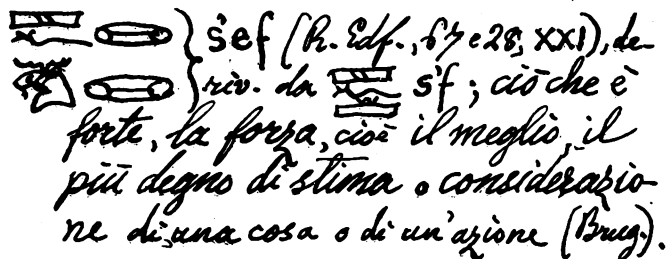 šef (R. Edf., 67 e 28, XXI), de-
riv. da šf ; ciò che è
forte, la forza, cioè il meglio, il
più degno di stima o considerazio-
ne di una cosa o di un'azione (Brug.).